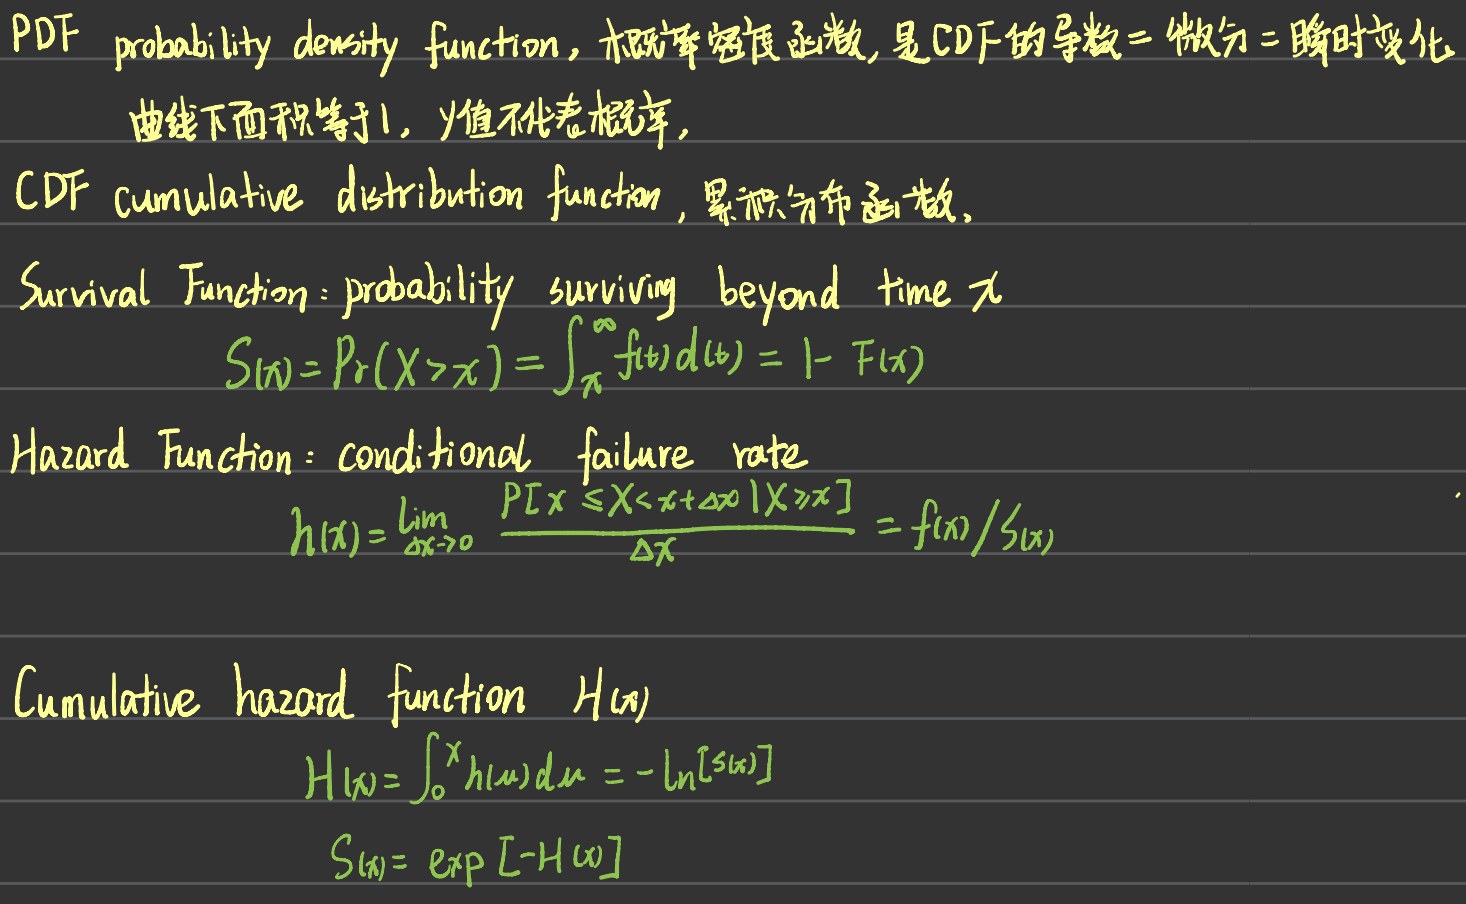 PDF probability density function, 概率密度函数, 是CDF的导数 = 微分 = 瞬时变化
曲线下面积等于1, y值不代表概率,
CDF cumulative distribution function, 累积分布函数、
Survival Function: probability surviving beyond time x
S(x) = Pr(X > x) = ∫_x^∞ f(t)d(t) = 1 - F(x)
Hazard Function: conditional failure rate
h(x) = lim_{Δx→0} P[x ≤ X < x+Δx | X ≥ x] / Δx = f(x)/S(x)
Cumulative hazard function H(x)
H(x) = ∫_0^x h(u)du = -ln[S(x)]
S(x) = exp[-H(x)]